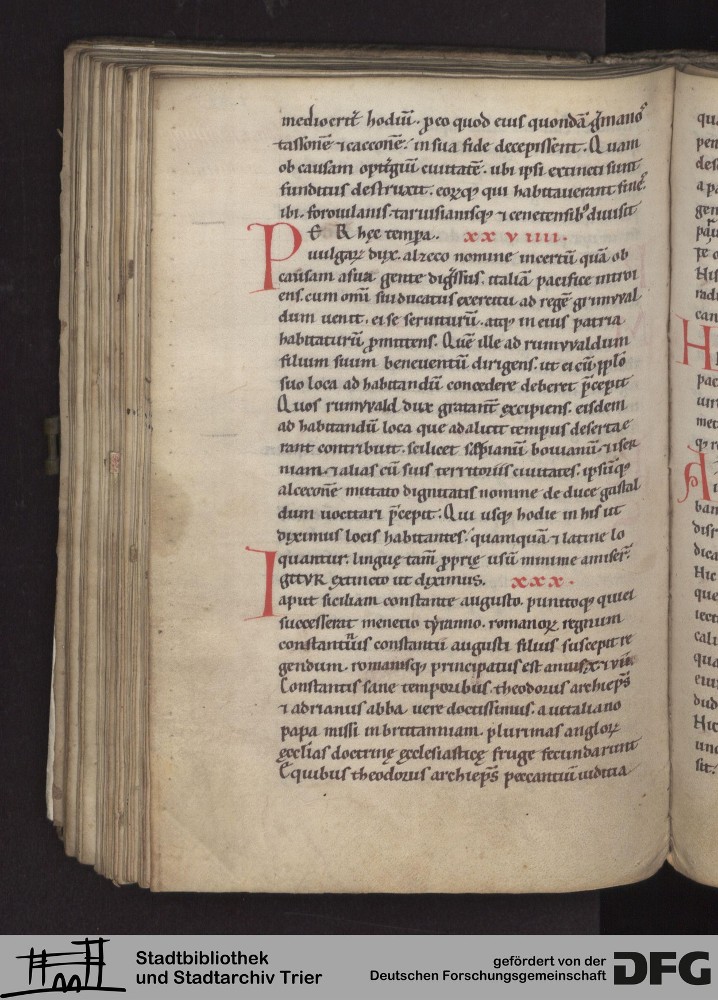 mediocrit̄ hodiū. p̱eo quod eius quondā gͥmanos
tassonē ⁊cacconē. in sua fide decepissent. Quam
ob causam opitgiū ciuitatē. ubi ipsi extincti sunt
funditus destruxit. eorꝝq; qui habitauerant fines
ibi. foroiulanis. taruisianisq; ⁊ cenetensibꝰ diuisit
PER hęc tempa. xxviiii.
uulgarꝝ dux. alzeco nomine incertū quā ob
causam a sua gente digͥssus. italiā pacifice introi
ens. cum omi sui ducatus exercitu ad regē grimwal
dum uenit. ei se seruiturū. atq; in eius patria
habitaturū p̱mittens. Quē ille ad rumwaldum
filium suum beneuentū dirigens. ut ei cū p̱plo
suo loca ad habitandū concedere deberet p̄cepit
Quos rumwald dux gratant̄ excipiens. eisdem
ad habitandū loca que ad alict̄ tempus deserta e
rant contribuit. scilicet sæpianū bouianū ⁊iser
niam. ⁊alias cū suis territoriis ciuitates. ipsūq;
alceconē mutato dignitatis nomine de duce gastal
dum uocitari p̄cepit. Qui usq; hodie in his ut
diximus locis habitantes. quamquā ⁊ latine lo
quantur. linguę tam̄ p̱prię usū minime amiser̄.
IgituR extincto ut diximus. xxx.
aput siciliam constante augusto. punitoq; qui ei
successerat menetio tyranno. romanorꝝ regnum
constantinus constantii augusti filius suscepit re
gendum. romanisq; principatus est annis x⁊vii.
Constantis sane temporibus. theodorus archiep̄s
⁊ adrianus abba. uere doctissimus. a uitaliano
papa missi in brittanniam. plurimas anglorꝝ
ęccl̄ias doctrinę ęcclesiasticę fruge fecundarunt
E quibus theodorus archiep̄s peccantiū iuditia
Stadtbibliothek
und Stadtarchiv Trier
gefördert von der
Deutschen Forschungsgemeinschaft
DFG